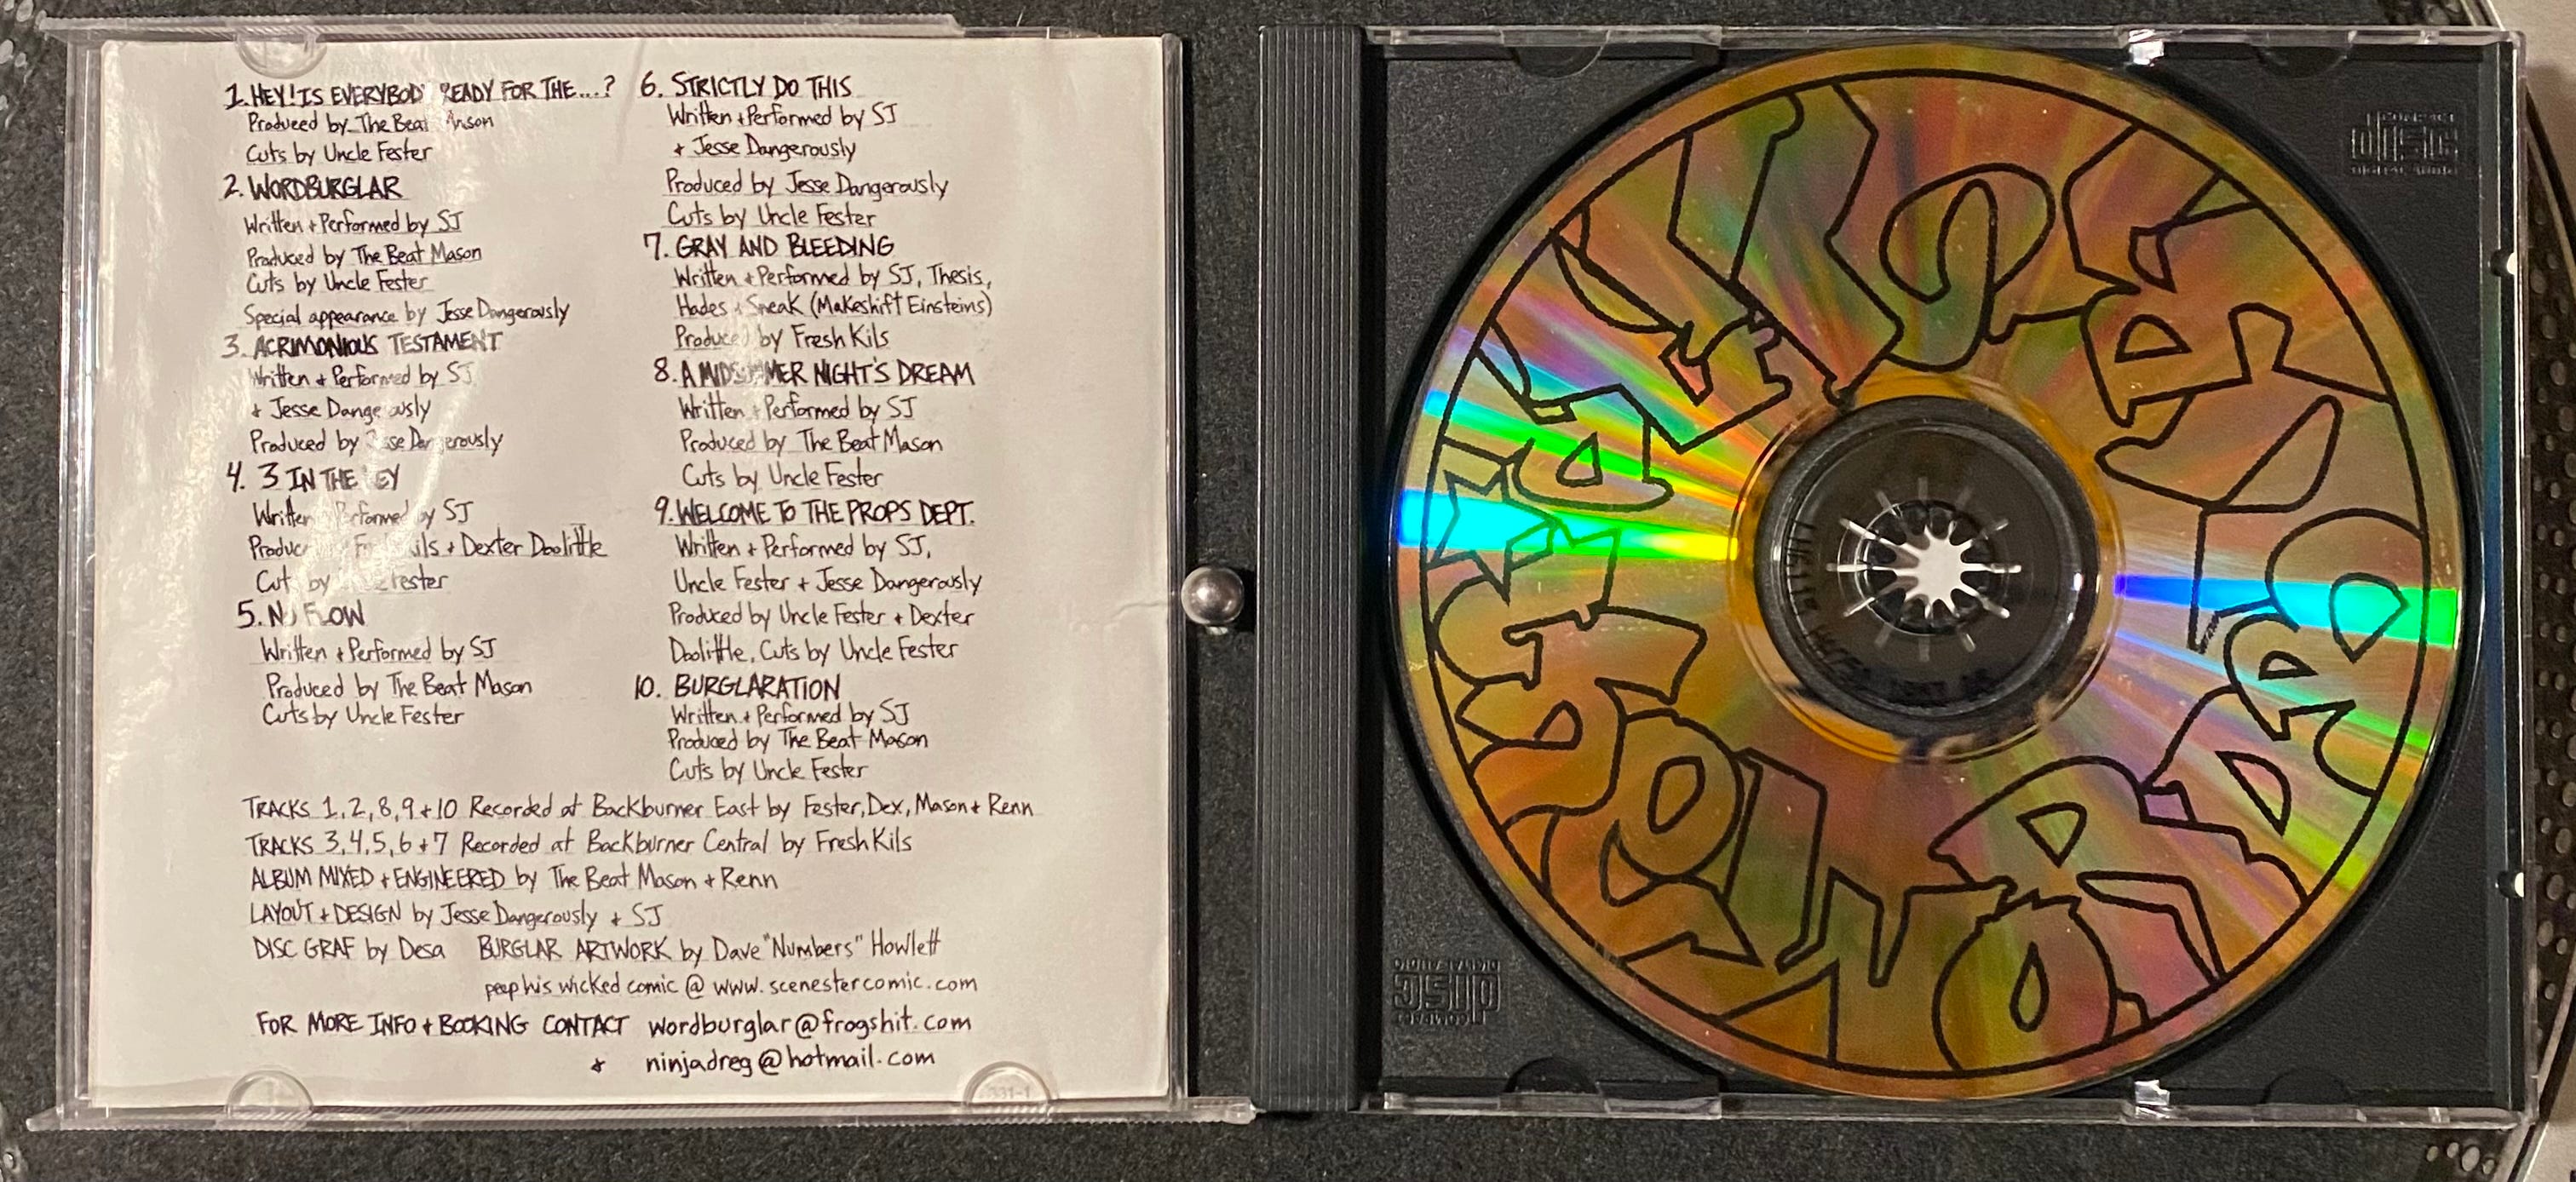 1. HEY! IS EVERYBODY READY FOR THE...?
Produced by The Beat Mason
Cuts by Uncle Fester
2. WORDBURGLAR
Written + Performed by SJ
Produced by The Beat Mason
Cuts by Uncle Fester
Special appearance by Jesse Dangerously
3. ACRIMONIOUS TESTAMENT
Written + Performed by SJ
+ Jesse Dangerously
Produced by Jesse Dangerously
4. 3 IN THE KEY
Written + Performed by SJ
Produced by Fresh Kils + Dexter Doolittle
Cuts by Uncle Fester
5. NO FLOW
Written + Performed by SJ
Produced by The Beat Mason
Cuts by Uncle Fester
6. STRICTLY DO THIS
Written + Performed by SJ
+ Jesse Dangerously
Produced by Jesse Dangerously
Cuts by Uncle Fester
7. GRAY AND BLEEDING
Written + Performed by SJ, Thesis,
Hades + Sneak (Makeshift Einsteins)
Produced by Fresh Kils
8. A MIDSUMMER NIGHT'S DREAM
Written + Performed by SJ
Produced by The Beat Mason
Cuts by Uncle Fester
9. WELCOME TO THE PROPS DEPT.
Written + Performed by SJ,
Uncle Fester + Jesse Dangerously
Produced by Uncle Fester + Dexter
Doolittle, Cuts by Uncle Fester
10. BURGLARATION
Written + Performed by SJ
Produced by The Beat Mason
Cuts by Uncle Fester
TRACKS 1, 2, 8, 9 + 10 Recorded at Backburner East by Fester, Dex, Mason + Renn
TRACKS 3, 4, 5, 6 + 7 Recorded at Backburner Central by Fresh Kils
ALBUM MIXED + ENGINEERED by The Beat Mason + Renn
LAYOUT + DESIGN by Jesse Dangerously + SJ
DISC GRAF by Desa BURGLAR ARTWORK by Dave "Numbers" Howlett
peep his wicked comic @ www.scenestercomic.com
FOR MORE INFO + BOOKING CONTACT wordburglar@frogshit.com
+ ninjadreg@hotmail.com
COMPACT
disc
DIGITAL AUDIO
COMPACT
disc
DIGITAL AUDIO